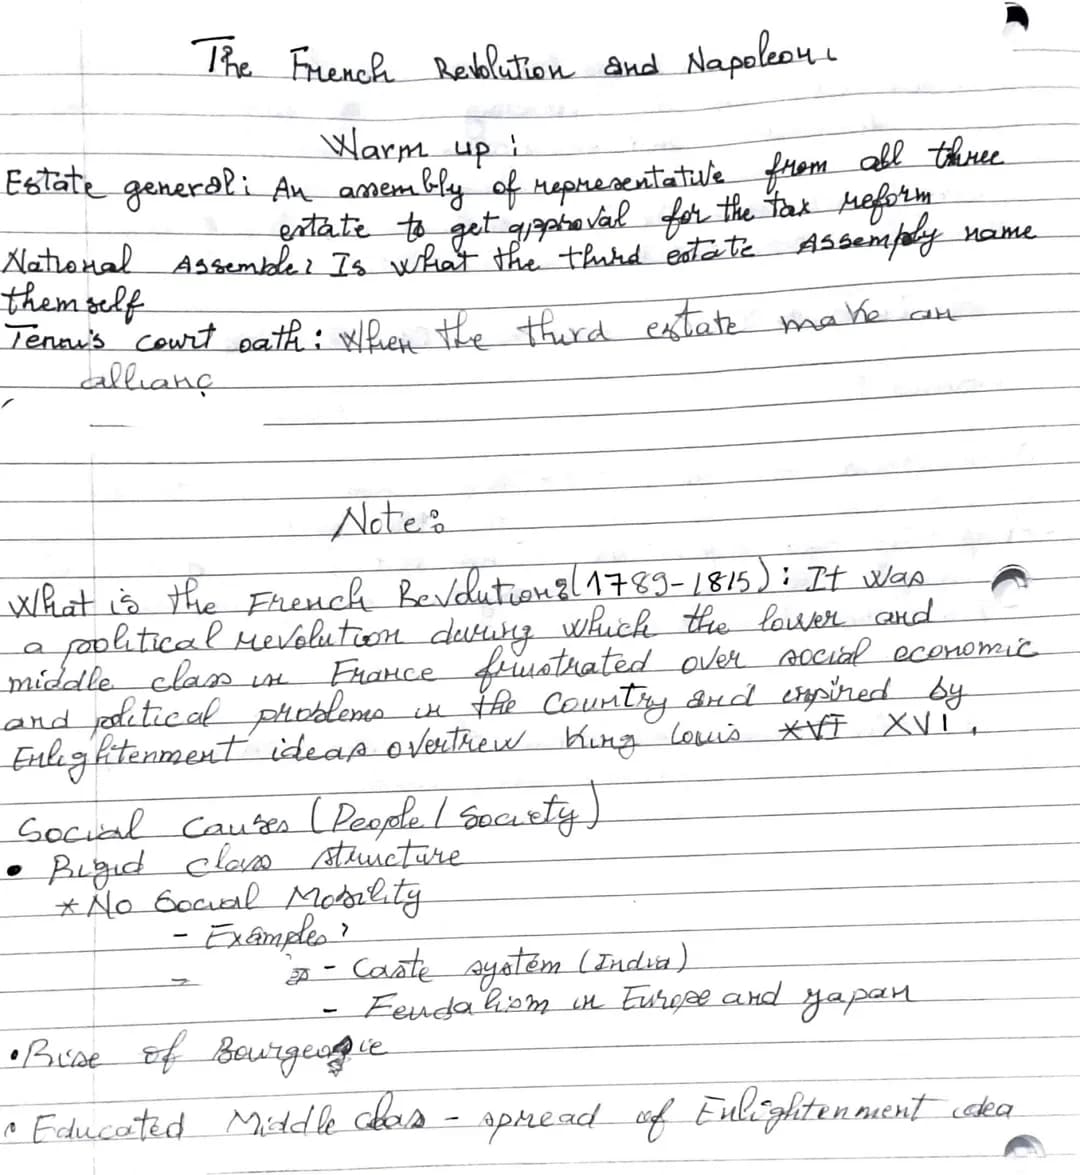 The French Revolution and Napoleon:
Warm up:
Estate general: An assembly of representative from all three
estate to get approval for the tax reform
National Assemble: Is what the third estate Assemply name
them self
Tennis court oath: When the third estate make an
allianç
Note:
What is the French Revolution: (1789-1815): It was
a political revolution during which the lower and
middle class in France frustrated over social economic
and political problems in the Country and inspired by
Enlightenment ideas overtrew King Louis XVI XVI.
Social Causes (People / Society)
• Rigid class structure
* No Social Mobility
- Examples:
- Caste system (India)
- Feudalism in Europe and yapan
• Rise of Bourgeosie
• Educated Middle class - spread of Enlightenment idea